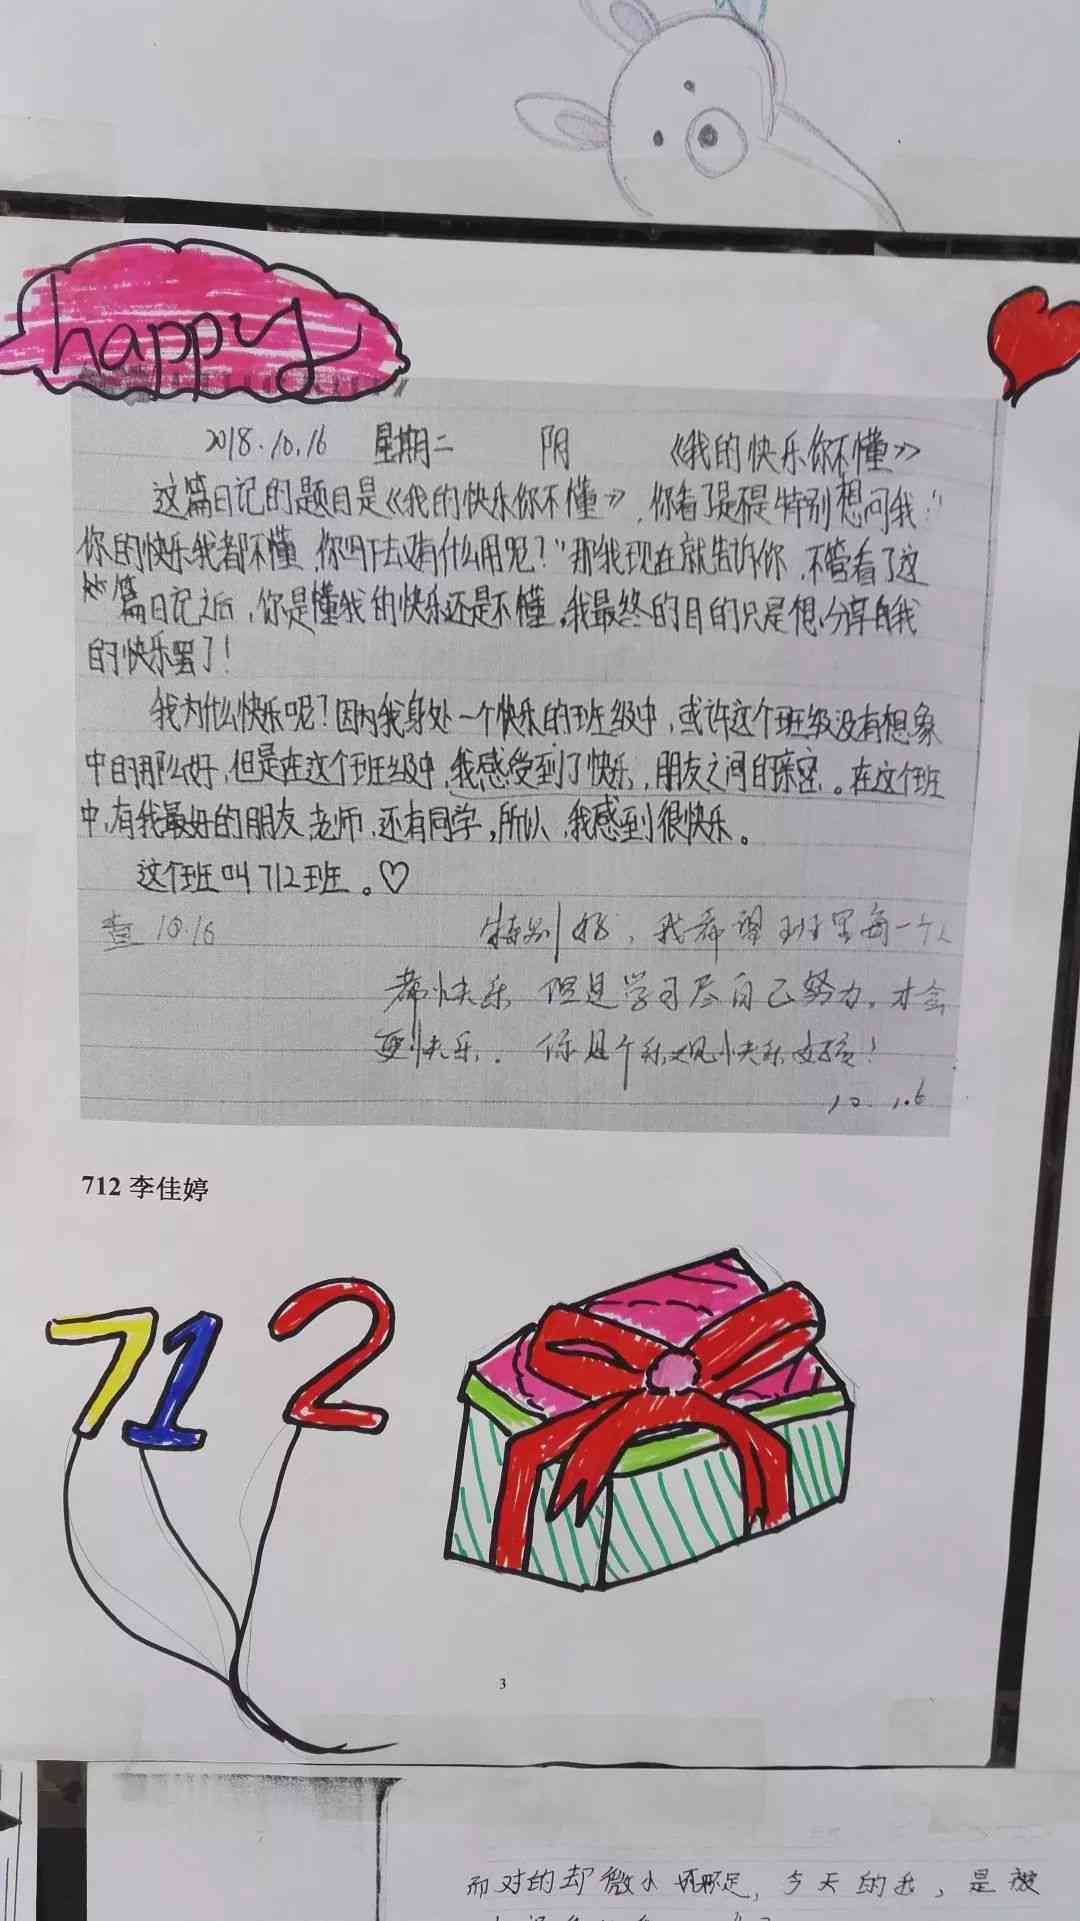 happy
2018.10.16 星期二 阴 《我的快乐你不懂》
这篇日记的题目是《我的快乐你不懂》,你看了是不是特别想问我:"
你的快乐我都不懂,你写下去又有什么用呢?"那我现在就告诉你,不管看了这
篇日记之后,你是懂我的快乐还是不懂,我最终的目的只是想分享自我
的快乐罢了!
我为什么快乐呢?因为我身处一个快乐的班级中,或许这个班级没有想象
中的那么好,但是在这个班级中,我感受到了快乐,朋友之间的亲密。在这个班
中,有我最好的朋友,老师,还有同学,所以,我感到很快乐。
这个班叫712班。♡
查 10.16
特别好,我希望班里每一个人
都快乐 但是学习尽自己努力,才会
更快乐. 你是个乐观快乐女孩!
10.16
712 李佳婷
712
3
而对的却微小 , 今天的我,是被